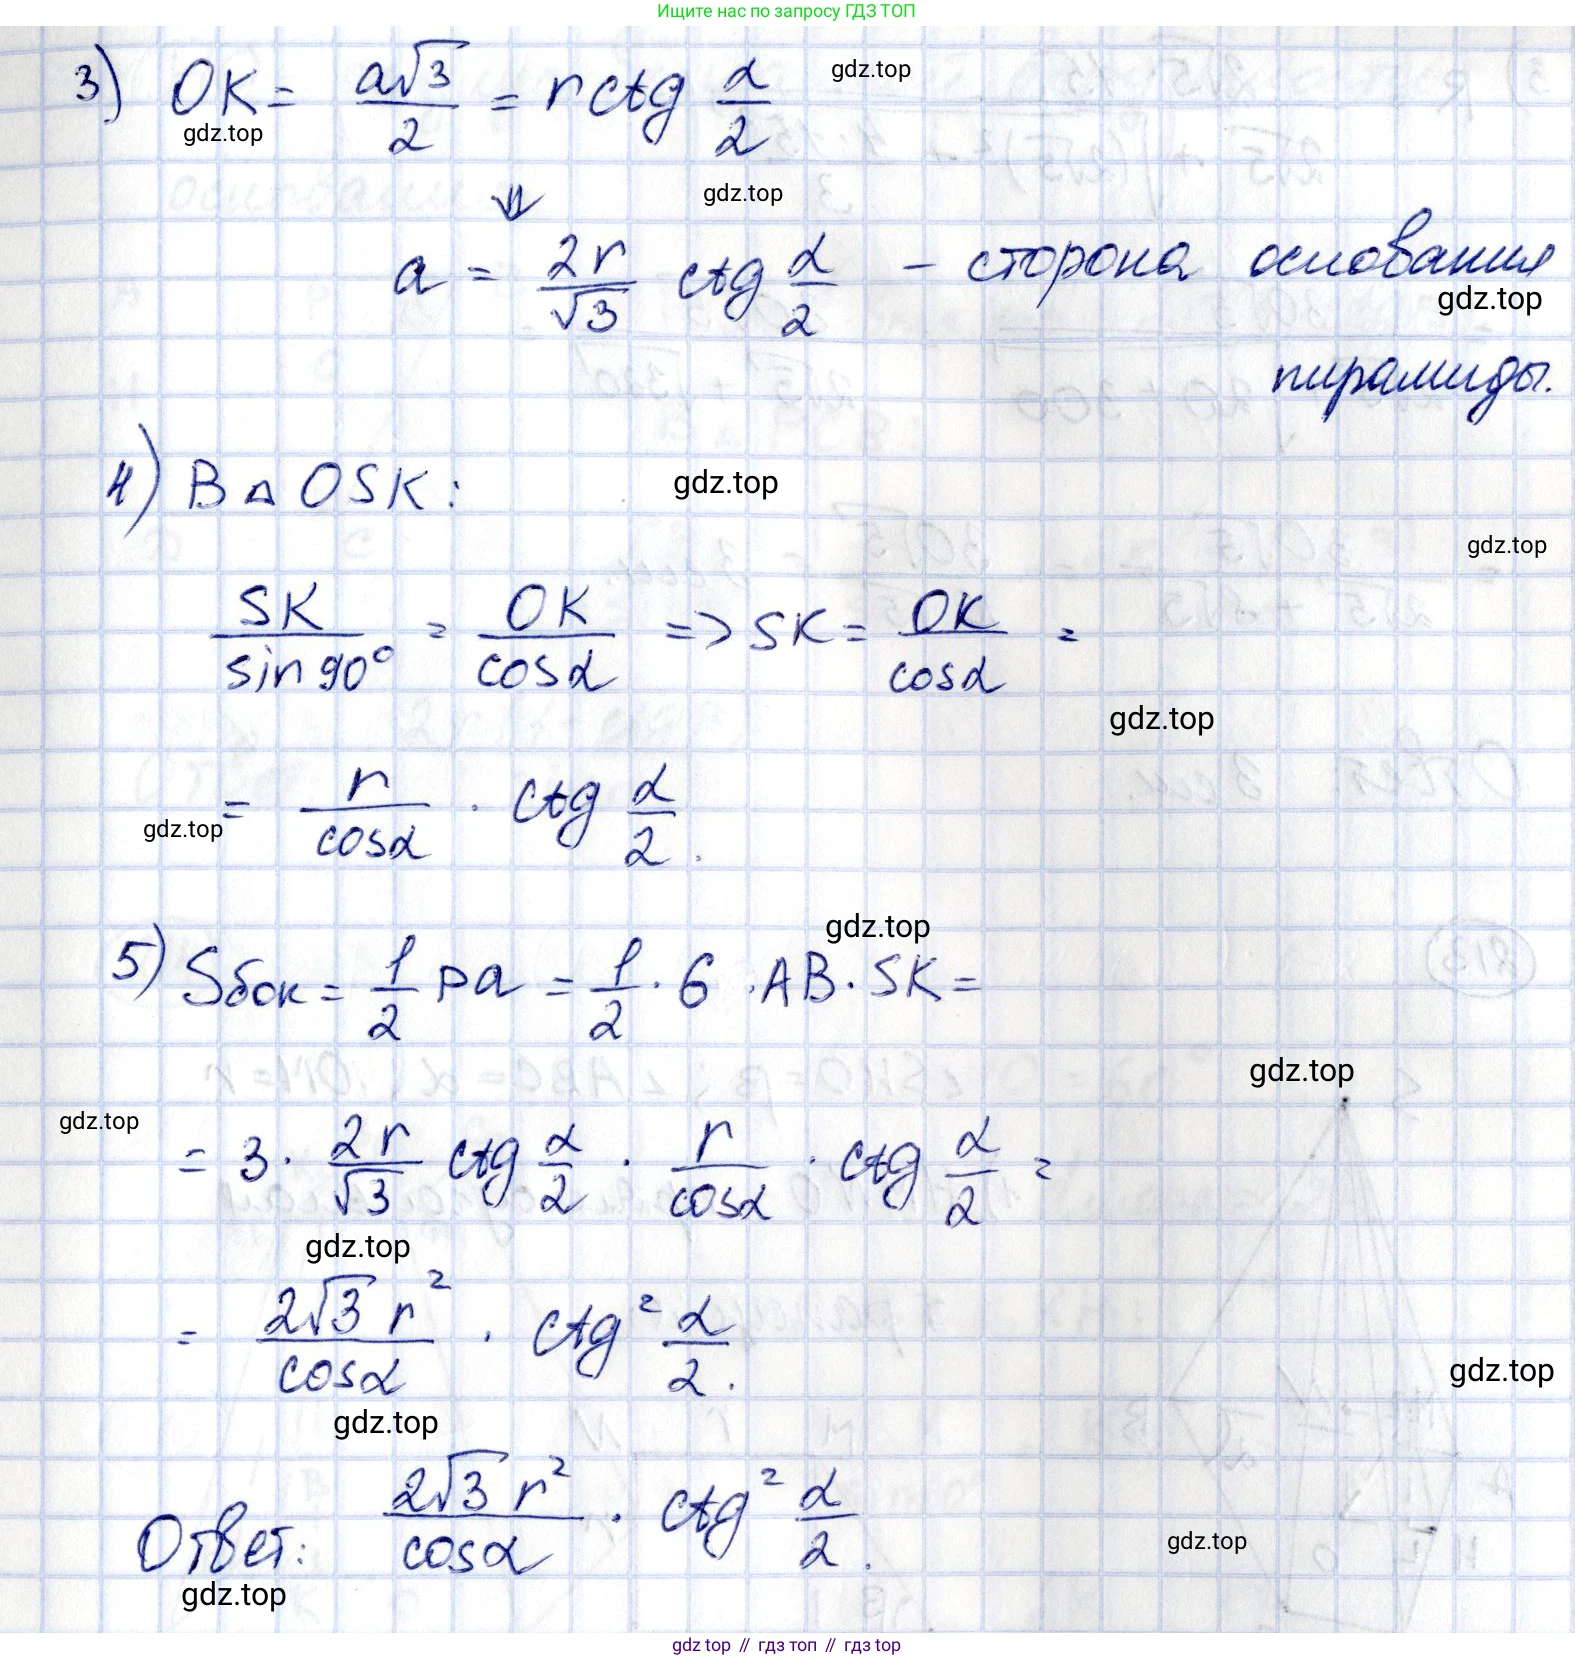 Ищите нас по запросу ГДЗ ТОП
3) OK = a√3/2 = r ctg α/2
gdz.top
gdz.top
⇓
gdz.top
a = 2r/√3 ctg α/2 – сторона основания
gdz.top
пирамиды.
4) В △ OSK:
gdz.top
gdz.top
SK/sin 90° = OK/cos α => SK = OK/cos α =
gdz.top
= r/cos α · ctg α/2.
gdz.top
gdz.top
5) Sбок = 1/2 Pa = 1/2 · 6 · AB · SK =
gdz.top
gdz.top
= 3 · 2r/√3 ctg α/2 · r/cos α · ctg α/2 =
gdz.top
= 2√3 r²/cos α · ctg² α/2.
gdz.top
gdz.top
Ответ: 2√3 r²/cos α · ctg² α/2.
gdz.top
gdz.top
gdz top // гдз топ // гдз top